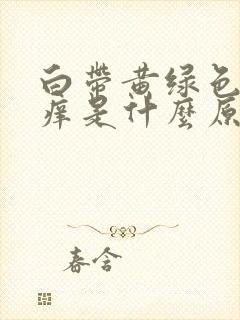 白带黄绿色
痒是什麼原
春含